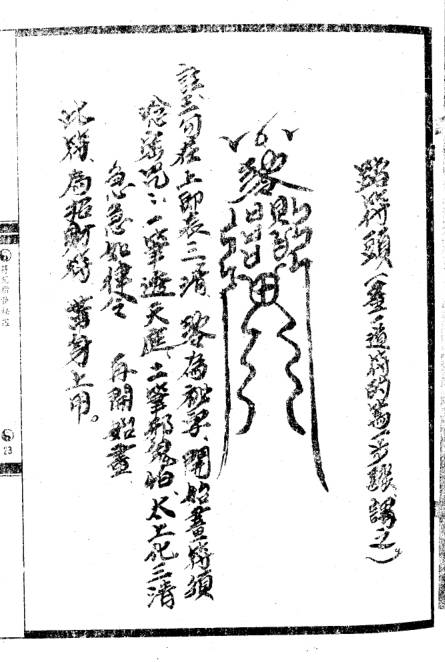 符頭(畫一道符的第一步驟謂之)
註:三勾在上即表三清、為秘字、開始畫符須
唸咒:一筆遊天庭、二筆邪鬼怕、太上化三清
急急如律令 再開始畫
此符為招財符 帶身上用。